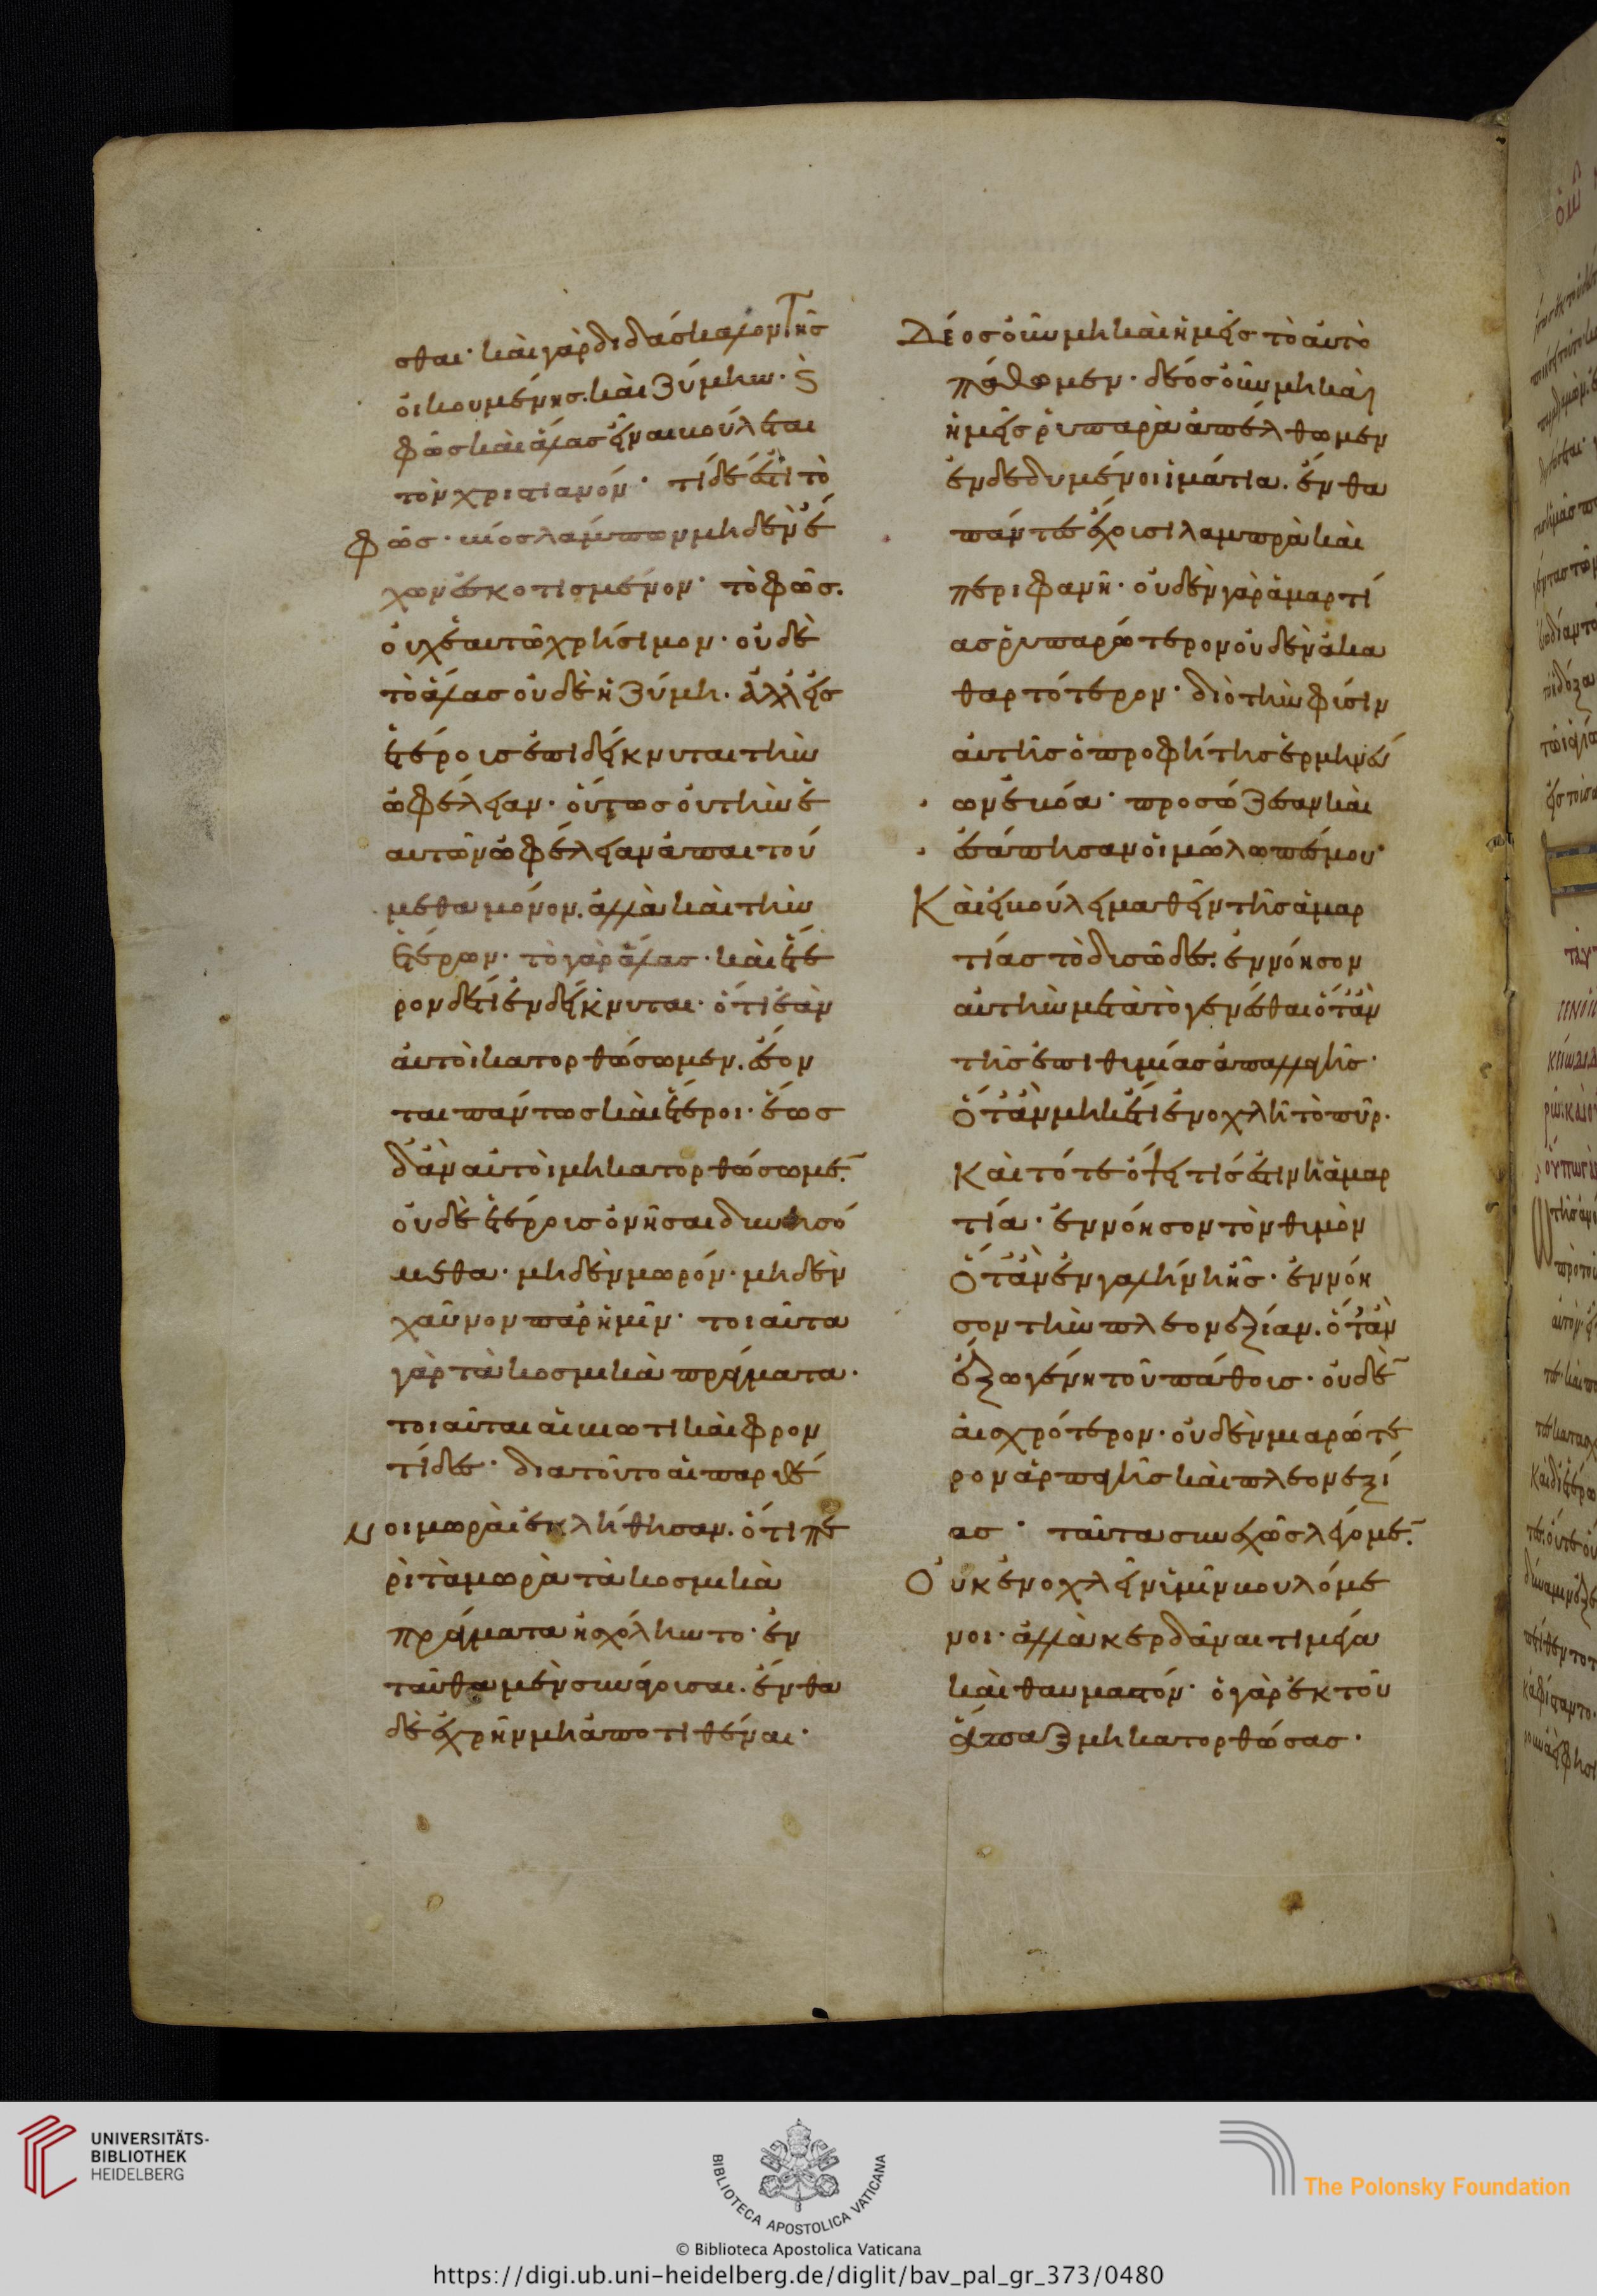 σθαι· καὶ γὰρ διδάσκαλον τῆς
οἰκουμένης. καὶ ζύμην· ϛ
φῶς καὶ ἅλας εἶναι βούλεται
τὸν χριστιανόν· τί δέ ἐστι τὸ
φῶς· βίος λάμπων μηδὲν ἐ
χων ἐσκοτισμένον· τὸ φῶς.
οὐχ ἑαυτῶ χρήσιμον· οὐδὲ
τὸ ἅλας οὐδὲ ἡ ζύμη. ἀλλ εἰς
ἑτέροις ἐπιδείκνυται τὴν
ὠφέλειαν· οὕτως οὐ τὴν ἑ
αυτῶν ὠφέλειαν ἀπαιτού
μεθα μόνον. ἀλλὰ καὶ τὴν
ἑτέρων· τὸ γὰρ ἅλας· καὶ ἕτε
ρον δέ τι ἐνδείκνυται· ὅτι ἐὰν
αὐτοὶ κατορθώσωμεν. ἔσον
ται πάντως καὶ ἕτεροι· ἕως
δ' ἂν αὐτοὶ μὴ κατορθώσωμε̅.
οὐδὲ ἑτέροις ὀνῆσαι δυνησό
μεθα· μηδὲν μωρόν· μηδὲν
χαῦνον παρ ἡμῖν· τοιαῦτα
γὰρ τὰ κοσμικὰ πράγματα·
τοιαῦται αἱ βιωτικαὶ φρον
τίδες· διατοῦτο αἱ παρθέ
νοι μωραὶ ἐκλήθησαν. ὅτι πε
ρὶ τὰ μωρὰ τὰ κοσμικὰ
πράγματα ἠσχόληντο· ἐν
ταῦθα μὲν συνάγουσαι. ἔνθα
δὲ ἐχρῆν μὴ ἀποτιθέναι·
Δέος οὖν μὴ καὶ ἡμεῖς τὸ αὐτὸ
πάθωμεν· δέος οὖν μὴ καὶ
ἡμεῖς ῥυπαρὰ ἀπέλθωμεν
ἐνδεδυμένοι ἱμάτια. ἔνθα
πάντες ἔχουσι λαμπρὰ καὶ
περιφανῆ· οὐδὲν γὰρ ἁμαρτί
ας ῥυπαρώτερον οὐδὲν ἀκα
θαρτότερον· διὸ τὴν φύσιν
αὐτῆς ὁ προφήτης ἑρμηνεύ
ων ἐβόα· προσώζεσαν καὶ
ἐσάπησαν οἱ μώλωπές μου·
Καὶ εἰ βούλει μαθεῖν τῆς ἁμαρ
τίας τὸ δυσῶδες. ἐννόησον
αὐτὴν μετὰ τὸ γενέσθαι ὅταν
τῆς ἐπιθυμίας ἀπαλλαγῆς·
ὅταν μηκέτι ἐνοχλῆ τὸ πῦρ.
Καὶ τότε ὄψει τίς ἐστιν ἡ ἁμαρ
τία· ἐννόησον τὸν θυμὸν
ὅταν ἐν γαλήνη ἧς· ἐννόη
σον τὴν πλεονεξίαν. ὅταν
ἔξω γένη τοῦ πάθους· οὐδὲ̅
αἰσχρότερον· οὐδὲν μιαρώτε
ρον ἁρπαγῆς καὶ πλεονεξί
ας· ταῦτα συνεχῶς λέγομε̅.
Οὐκ ἐνοχλεῖν ὑμῖν βουλόμε
νοι· ἀλλὰ κερδᾶναί τι μέγα
καὶ θαυμαστόν· ὁ γὰρ ἐκ τοῦ
ἅπαξ μὴ κατορθώσας·
UNIVERSITÄTS-
BIBLIOTHEK
HEIDELBERG
BIBLIOTECA APOSTOLICA VATICANA
The Polonsky Foundation
© Biblioteca Apostolica Vaticana
https://digi.ub.uni-heidelberg.de/diglit/bav_pal_gr_373/0480